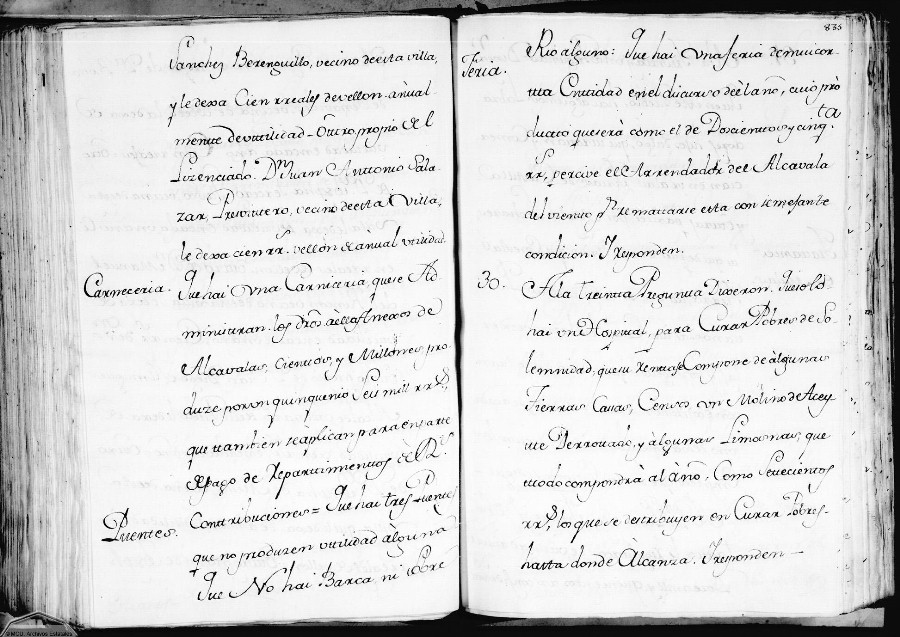 Sanchez Berenguillo, vecino de esta villa,
y le dexa Cien rreales de vellon anual
mente de vtilidad = Otro propio de el
Lizenciado Dn Juan Antonio Sala
zar, Presvitero, vecino de esta Villa,
le dexa cien rrs. vellon de anual vtilidad.
Carneceria. Que hai vna Carniceria, que se Ad
ministran los dros de los
Alcavalas, Cientos, y Millones, pro
duze por vn quinquenio Seis mill rrs,
que tambien se aplican para en parte
de pago de repartimientos de Rs
Puentes. Contribuciones = Que hai tres Puentes
que no produzen vtilidad alguna
Que No hai Barca ni sobre
835
Rio alguno: Que hai vna feria de mui cor
Feria.
tta Enttidad en el discurso de el año, cuio pro
ducto que sera como el de Doscientos y cinqta
rrs, percive el Arrendador del Alcavala
del viento pr rematarse esta con semejante
condicion. Y responden.
30. A la treinta Pregunta Dixeron. Que solo
hai vn Hospital, para Curar Pobres de So
lemnidad, que su renta se Compone de algunas
Tierras Casas, Censos vn Molino de Acey
te Derrotado, y algunas Limosnas, que
todo compondrà àl àño, Como Setecientos
rrs, los que se destribuyen en Curar Pobres
hasta donde Alcanza. Y responden
©MCD. Archivos Estatales